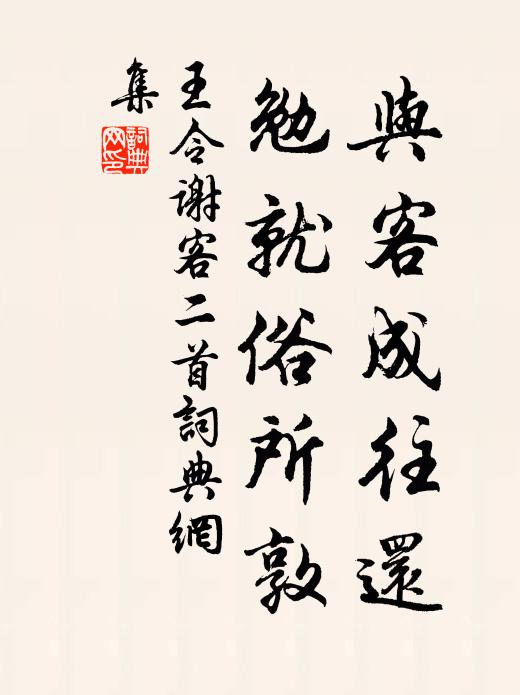 與客成往還
勉就俗所敦
王令謝客二首詞典網
集
詞典网印